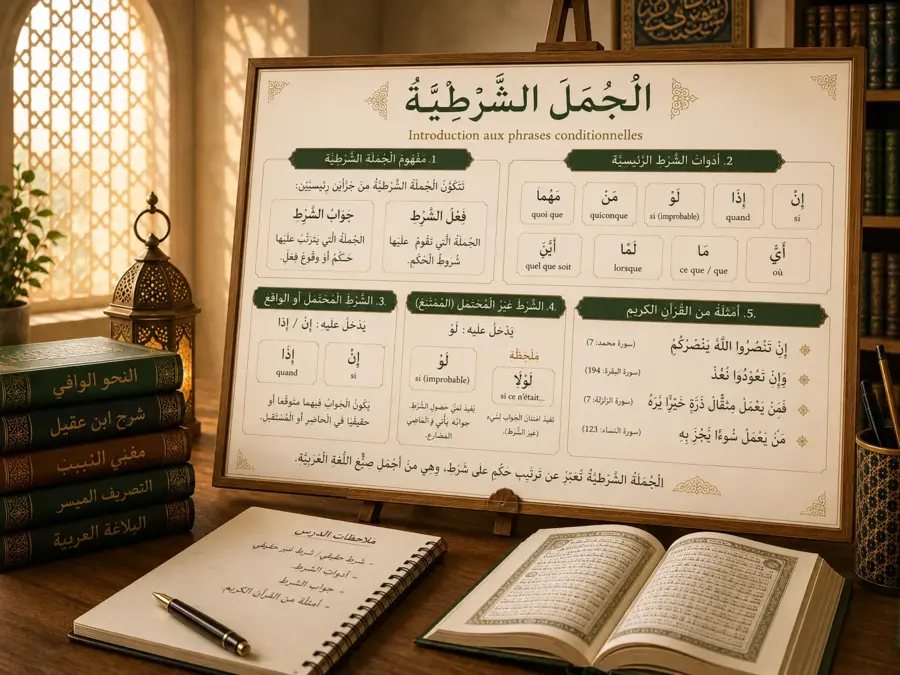 الْجُمَلَ الشَّرْطِيَّةُ
Introduction aux phrases conditionnelles
1. مَفْهُومُ الْجُمْلَةِ الشَّرْطِيَّةِ
تَتَكَوَّنُ الْجُمْلَةُ الشَّرْطِيَّةُ مِنْ جُزْأَيْنِ رَئِيسِيَّيْنِ:
فَعْلُ الشَّرْطِ
الْجُمْلَةُ الَّتِي تَقُومُ عَلَيْها
شُرُوطُ الْحُكْمِ.
جَوَابُ الشَّرْطِ
الْجُمْلَةُ الَّتي يَتَرَتَّبُ عَلَيْها
حُكْمٌ أَوْ وُقُوعُ فِعْلٍ.
2. أَدَوَاتُ الشَّرْطِ الرَّئِيسِيَّةِ
إِنْ
si
إِذَا
quand
لَوْ
si (improbable)
مَنْ
quiconque
مَهْمَا
quoi que
أَيُّ
où
مَا
ce que / que
لَمَّا
lorsque
أَيَّنَ
quel que soit
3. الشَّرْطُ الْمُحْتَمَلُ أو الواقع
يَدْخُلُ عليه: إِنْ / إذا
إِنْ
si
إِذَا
quand
يَكُونُ الْجَوابُ فيهما مُتَوَقَّعًا أو
حقيقيًا في الْحَاضِرِ أو الْمُسْتَقْبَلِ.
4. الشَّرْطُ غَيْرُ الْمُحْتَمَلِ (الْمُمْتَنِعُ)
يَدْخُلُ عليه: لَوْ
لَوْ
si (improbable)
يُفيدُ تَمَنِّيَ حُصُولِ الشَّرْطِ.
جوابُهُ يأتي في الْمَاضِي
الْمُضَارِع.
مُلَاحَظَة
لَوْلَا
si ce n'était...
تفيدُ امْتِنَاعَ الْجَوابِ لِشَيْءٍ
(غير الشَّرْطِ).
5. أَمْثِلَةٌ مِنَ الْقُرْآنِ الكريم
إِن تَنْصُرُوا اللَّهَ يَنْصُرْكُمْ (سورة محمد: 7)
وَإِنْ تَعُودُوا نُعُدْ (سورة البقرة: 194)
فَمَنْ يَعْمَلْ مِثْقَالَ ذَرَّةٍ خَيْرًا يَرَهُ (سورة الزلزلة: 7)
مَنْ يَعْمَلْ سُوءًا يُجْزَ بِهِ (سورة النساء: 123)
الْجُمْلَةُ الشَّرْطِيَّةُ تُعَبِّرُ عن تَرْتِيبِ حُكْمٍ على شَرْطٍ، وهي مِنْ أَجْمَلِ صِيَغِ اللُّغَةِ الْعَرَبِيَّةِ.
النحو الوافي
شرح ابن عقيل
مغني النبيب
التصريف الميسر
البلاغة العربية
ملاحظات الدرس
- شرط حقيقي / شرط غير حقيقي
- أدوات الشرط.
- جواب الشرط
- أمثلة عن القرآن الكريم.